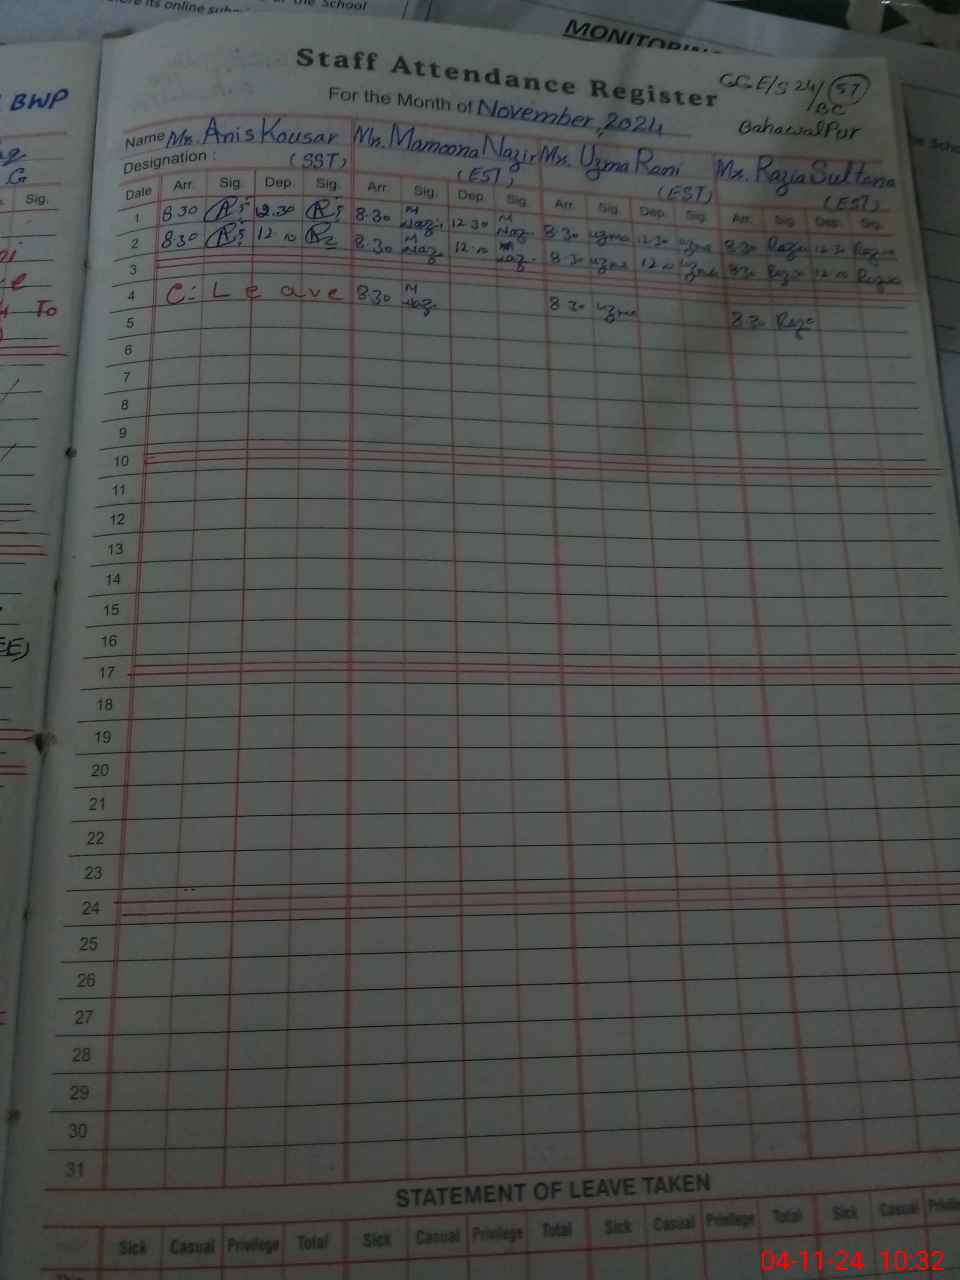 its online
the School
MONITORING
BWP
G
Sig.
To
Staff Attendance Register
GGE/S 24/BC (57)
For the Month of November, 2024
Bahawalpur
Name Ms. Anis Kousar Ms. Mamoona Nazir Ms. Uzma Rani Ms. Razia Sultana
Designation : (SST) (EST) (EST) (EST)
Date Arr. Sig. Dep. Sig. Arr. Sig. Dep. Sig. Arr. Sig. Dep. Sig. Arr. Sig. Dep. Sig.
1 8:30 12.30 8.30 M Naz. 12:30 M Naz. 8:30 uzma 12:30 uzma 8:30 Razia 12:30 Razia
2 8:30 12:00 8:30 M Naz. 12:00 M Naz. 8:30 uzma 12:00 uzma 8:30 Razia 12:00 Razia
3
4 C: Leave 8:30 M Naz. 8:30 uzma 8:30 Razia
5
6
7
8
9
10
11
12
13
14
15
16
17
18
19
20
21
22
23
24
25
26
27
28
29
30
31
STATEMENT OF LEAVE TAKEN
Sick Casual Privilege Total Sick Casual Privilege Total Sick Casual Privilege Total Sick Casual
04-11-24 10:32